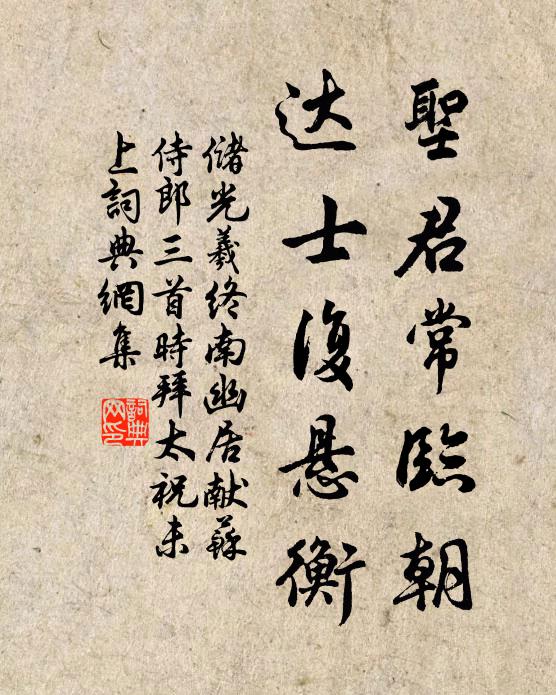 聖君常臨朝
达士復悬衡
储光羲终南幽居献蘇
侍郎三首時拜太祝未
上詞典網集
詞典网印